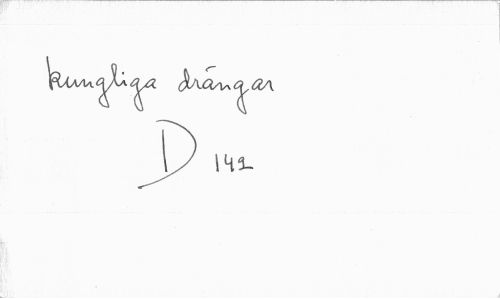 kungliga drängar
D 142